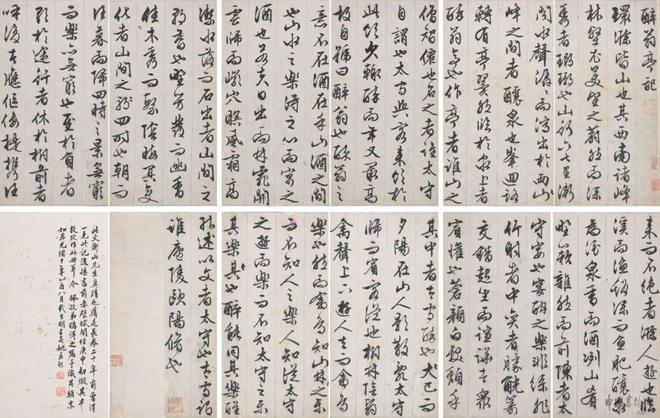 醉翁亭記
環滁皆山也其西南諸峰
林壑尤美望之蔚然而深
秀者瑯琊也山行六七里漸
聞水聲潺潺而瀉出於兩山
峰之間者釀泉也峯回路
轉有亭翼然臨於泉上者
醉翁亭也作亭者誰山之
僧智僊也名之者誰太守
自謂也太守與客來飲於
此飲少輒醉而年又最高
故自號曰醉翁也醉翁之
意不在酒在乎山水之間
也山水之樂得之心而寓之
酒也若夫日出而林霏開
雲歸而巖穴暝風霜高
潔水落而石出者山間之
朝暮也野芳發而幽香
佳木秀而繁陰晦明變
化者山間之四時也朝而
往暮而歸四時之景無窮
而樂亦無窮也至於負者
歌於途行者休於樹前者
呼後者應傴僂提攜往
來而不絕者滁人遊也臨
溪而漁溪深而魚肥釀泉
為酒泉香而酒洌山肴
野蔌雜然而前陳者太
守宴也宴酣之樂非絲非
竹射者中奕者勝觥籌
交錯起坐而諠譁者衆
賓懽也蒼顏白髮頹乎
其中者太守醉也已而
夕陽在山人影散亂太守
歸而賓客從也樹林陰翳
禽聲上下遊人去而禽鳥
樂也然而禽鳥知山林之樂
而不知人之樂人知從太守
之遊而樂而不知太守之樂
其樂也醉能同其樂醒
能述以文者太守也太守謂
誰廬陵歐陽脩也
此文衡山先生真蹟也猶是長卷二十年前曾得
一見
光緒十年八月姚孟起